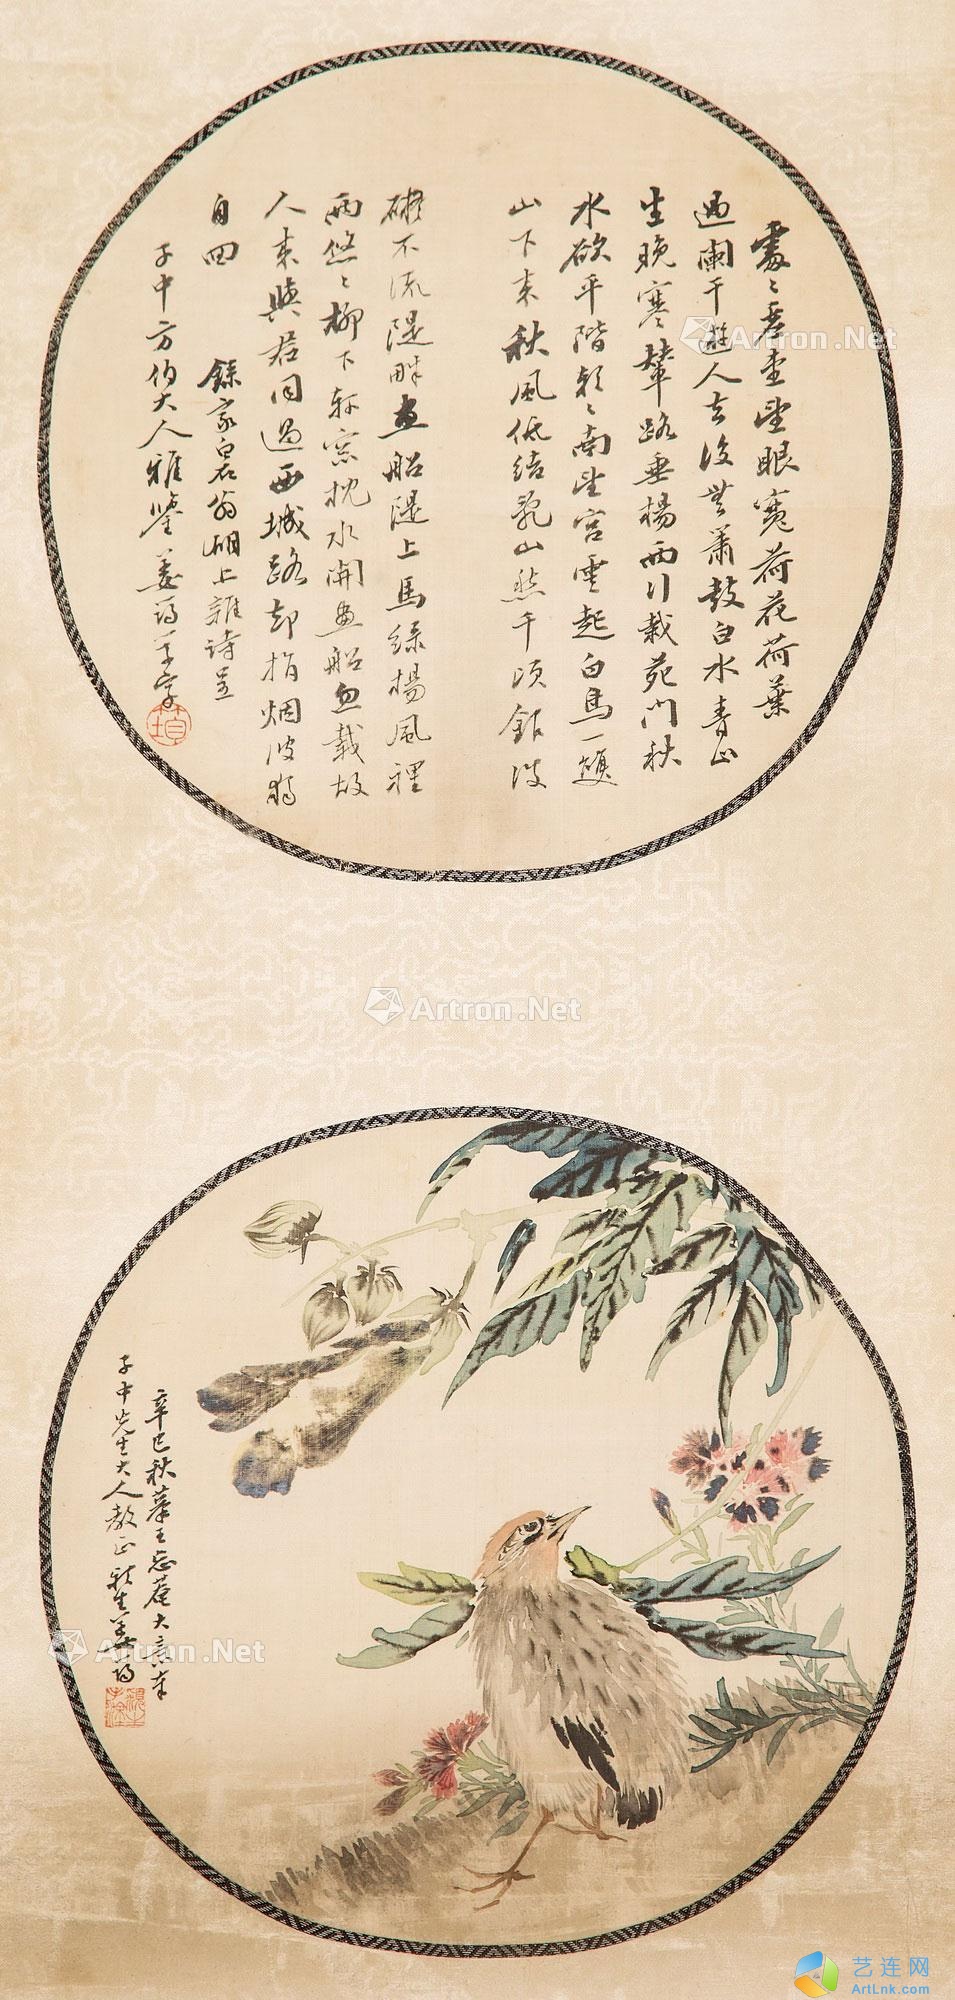 處〻虛堂望眼寬荷花荷葉
過闌干遊人去後無簫鼓白水青山
生晚寒輦路垂楊兩行栽苑門秋
水欲平階朝〻南望宮雲起白鳥一雙
山下來秋風低結亂山愁千頃銀波
礙不流隄畔畫船隄上馬綠楊風裡
兩悠〻柳下軒窗枕水開畫船忽載故
人來與君同過西城路却指烟波獨
自回
錄家白石翁湖上雜詩呈
子中方伯大人雅鑒姜筠手字
辛巳秋摹王忘菴大意奉
子中先生大人教正穎生姜筠
Artron.Net
Artron.Net
Artron.Net
Artron.Net
艺连网
ArtLnk.com